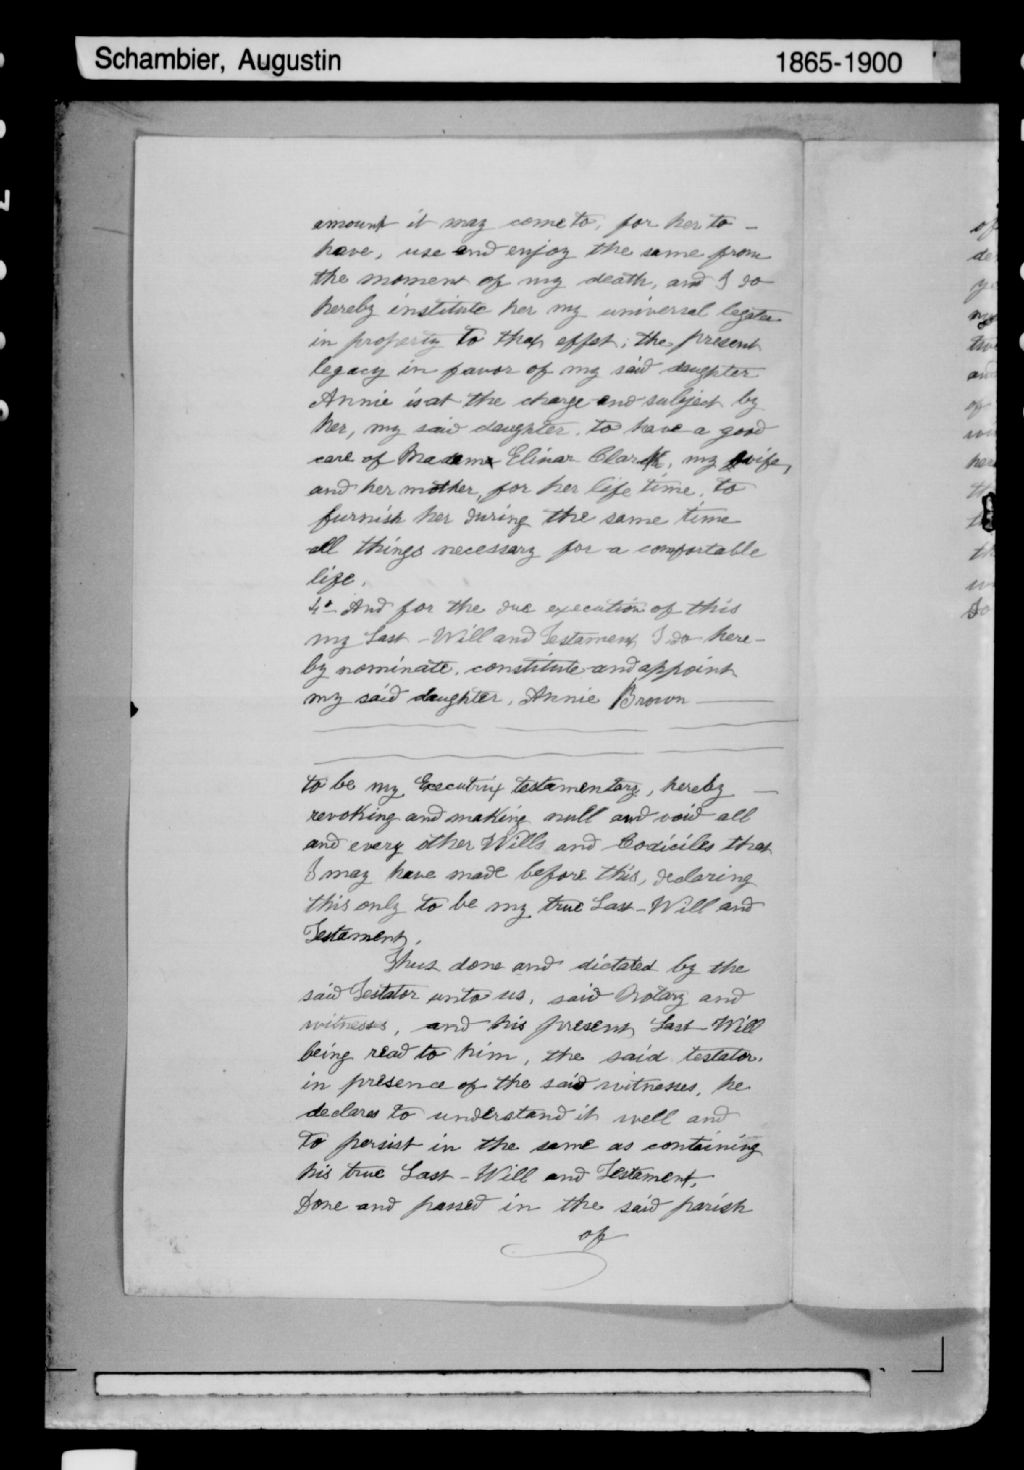 Schambier, Augustin 1865-1900
amount it may come to, for her to -
have, use and enjoy the same from
the moment of my death, and I do
hereby institute her my universal legatee
in property to that effet; the present
legacy in favor of my said daughter
Annie is at the charge and subject by
her, my said daughter, to have a good
care of Madame Elinar Clark, my wife,
and her mother, for her life time, to
furnish her during the same time
all things necessary for a comfortable
life.
4º And for the due execution of this
my Last - Will and Testament, I do here-
by nominate, constitute and appoint
my said daughter, Annie Brown —
to be my Executrix testamentary, hereby —
revoking and making null and void all
and every other Wills and Codiciles that
I may have made before this, declaring
this only to be my true Last - Will and
Testament.
Thus done and dictated by the
said Testator unto us, said Notary and
witnesses, and his present Last - Will
being read to him, the said testator,
in presence of the said witnesses, he
declares to understand it well and
to persist in the same as containing
his true Last - Will and Testament.
Done and passed in the said parish
of